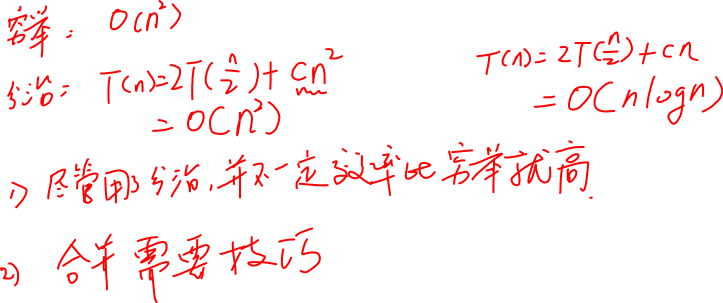 穷举: O(n²)
分治: T(n)=2T(n/2)+cn²
=O(n²)
T(n)=2T(n/2)+cn
=O(nlogn)
1) 尽管用了分治,并不一定效率比穷举就高.
2) 合并需要技巧